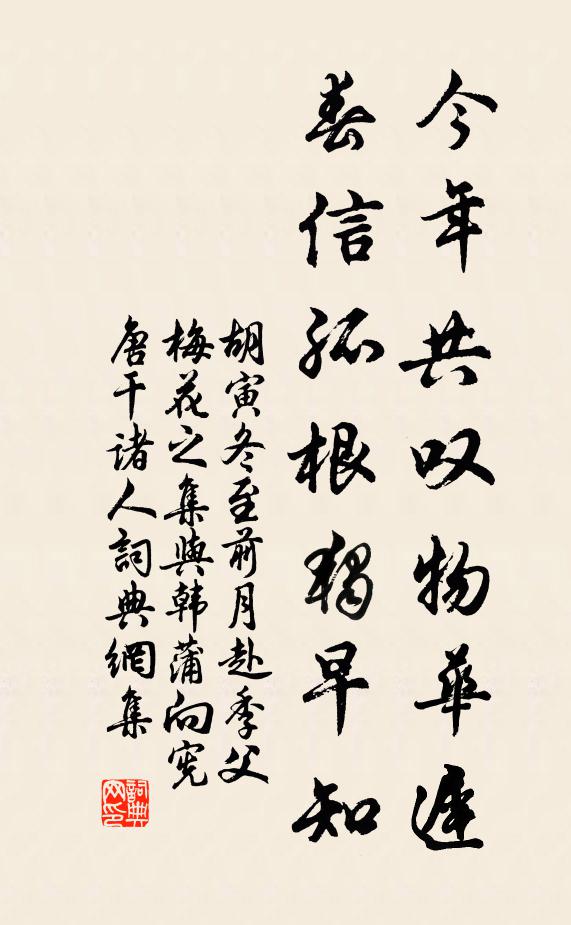 今年共叹物华遲
春信孤根獨早知
胡寅冬至前月赴季父
梅花之集與韩蒲向宪
唐干诸人詞典網集
詞典网印